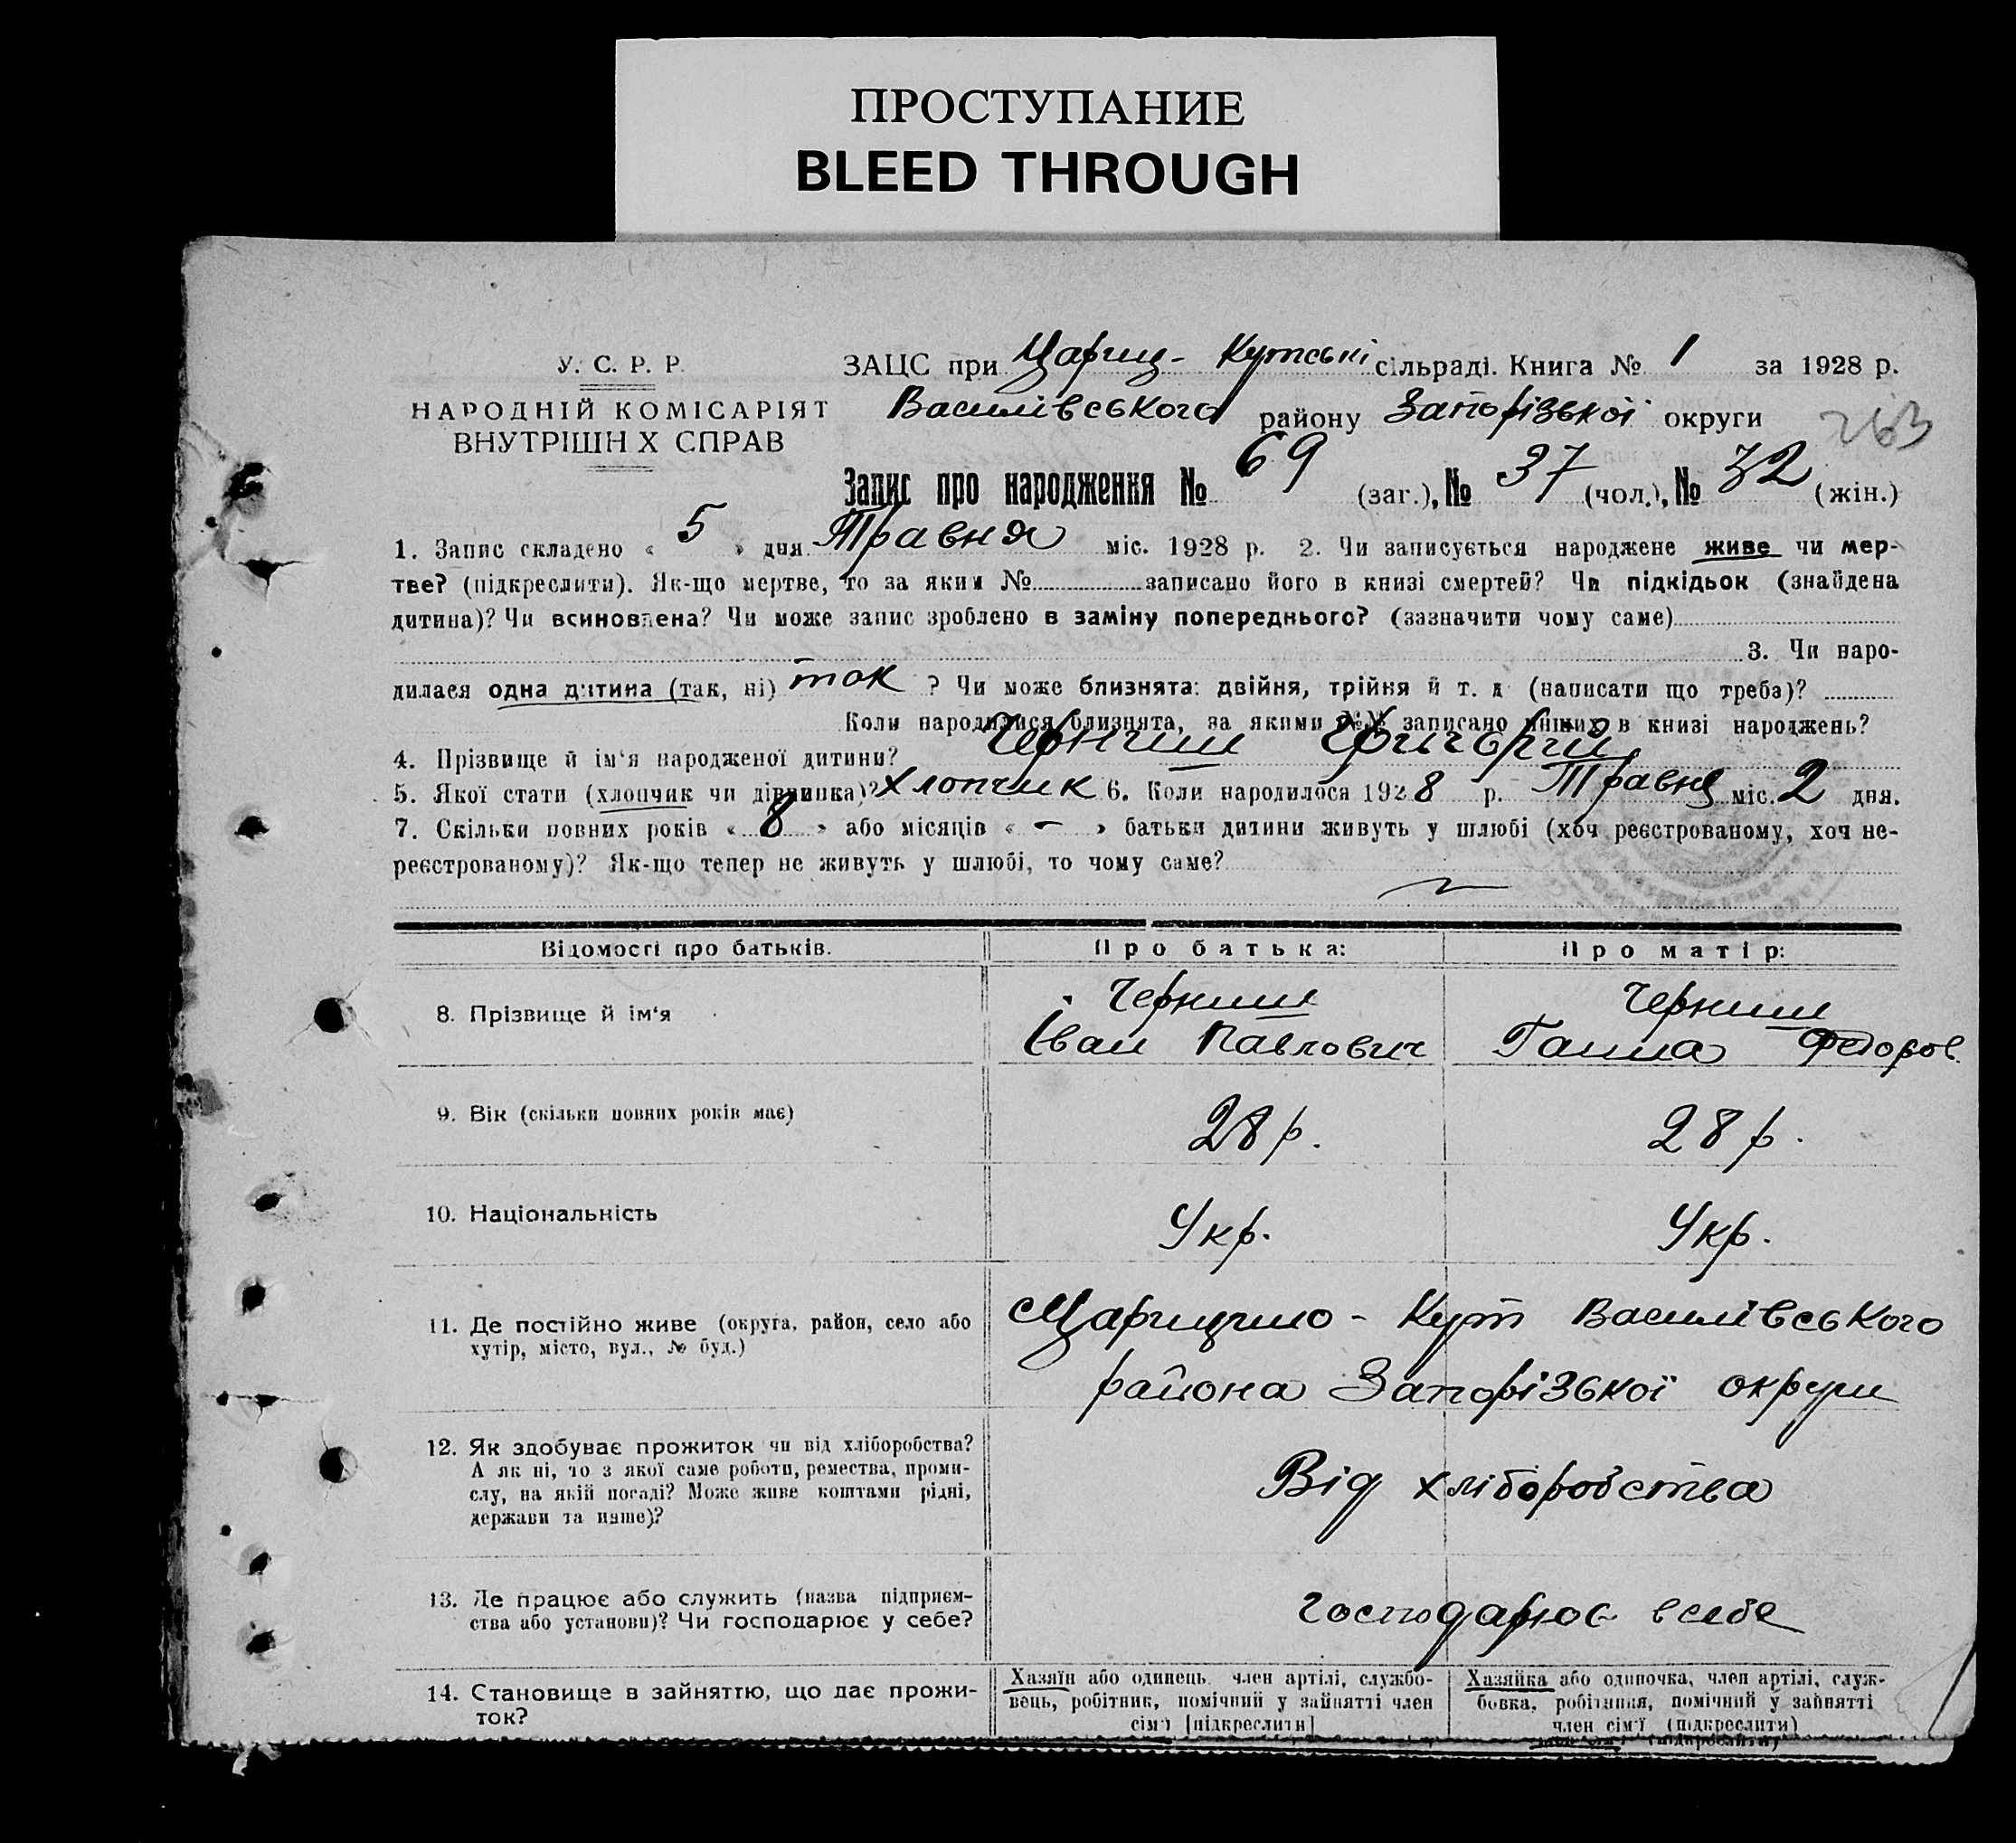 ПРОСТУПАНИЕ
BLEED THROUGH
У. С. Р. Р.
НАРОДНІЙ КОМІСАРІЯТ
ВНУТРІШН Х СПРАВ
ЗАЦС при Цариц- Кутській сільраді. Книга № 1 за 1928 р.
Василівського району Запорізької округи
263
Запис про народження № 69 (заг.), № 37 (чол.), № 32 (жін.)
1. Запис складено « 5 » дня Травня міс. 1928 р. 2. Чи записується народжене живе чи мер-
тве? (підкреслити). Як-що мертве, то за яким № записано його в книзі смертей? Чи підкідьок (знайдена
дитина)? Чи всиновлена? Чи може запис зроблено в заміну попереднього? (зазначити чому саме)
3. Чи наро-
дилася одна дитина (так, ні) так ? Чи може близнята: двійня, трійня й т. д (написати що треба)?
Коли народилися близнята, за якими №№ записано інших в книзі народжень?
4. Прізвище й ім'я народженої дитини? Черниш Григорій
5. Якої стати (хлопчик чи дівчинка)? хлопчик 6. Коли народилося 1928 р. Травня міс. 2 дня.
7. Скільки повних років « 8 » або місяців « – » батьки дитини живуть у шлюбі (хоч реєстрованому, хоч не-
реєстрованому)? Як-що тепер не живуть у шлюбі, то чому саме?
Відомості про батьків. Про батька: Про матір:
8. Прізвище й ім'я
Черниш
Іван Павлович
Черниш
Ганна Федоров.
9. Вік (скільки повних років має) 28 р. 28 р.
10. Національність Укр. Укр.
11. Де постійно живе (округа, район, село або
хутір, місто, вул., № буд.)
Царицино - Кут Василівського
района Запорізької округи
12. Як здобуває прожиток чи від хліборобства?
А як ні, то з якої саме роботи, ремества, проми-
слу, на якій посаді? Може живе коштами рідні,
держави та инше)?
Від хліборобства
13. Де працює або служить (назва підприєм-
ства або установи)? Чи господарює у себе?
господарює в себе
14. Становище в зайняттю, що дає прожи-
ток?
Хазяїн або одинець, член артілі, службо-
вець, робітник, помічний у зайнятті член
сім'ї [підкреслити]
Хазяйка або одиночка, член артілі, служ-
бовка, робітниця, помічний у зайнятті
член сім'ї (підкреслити)